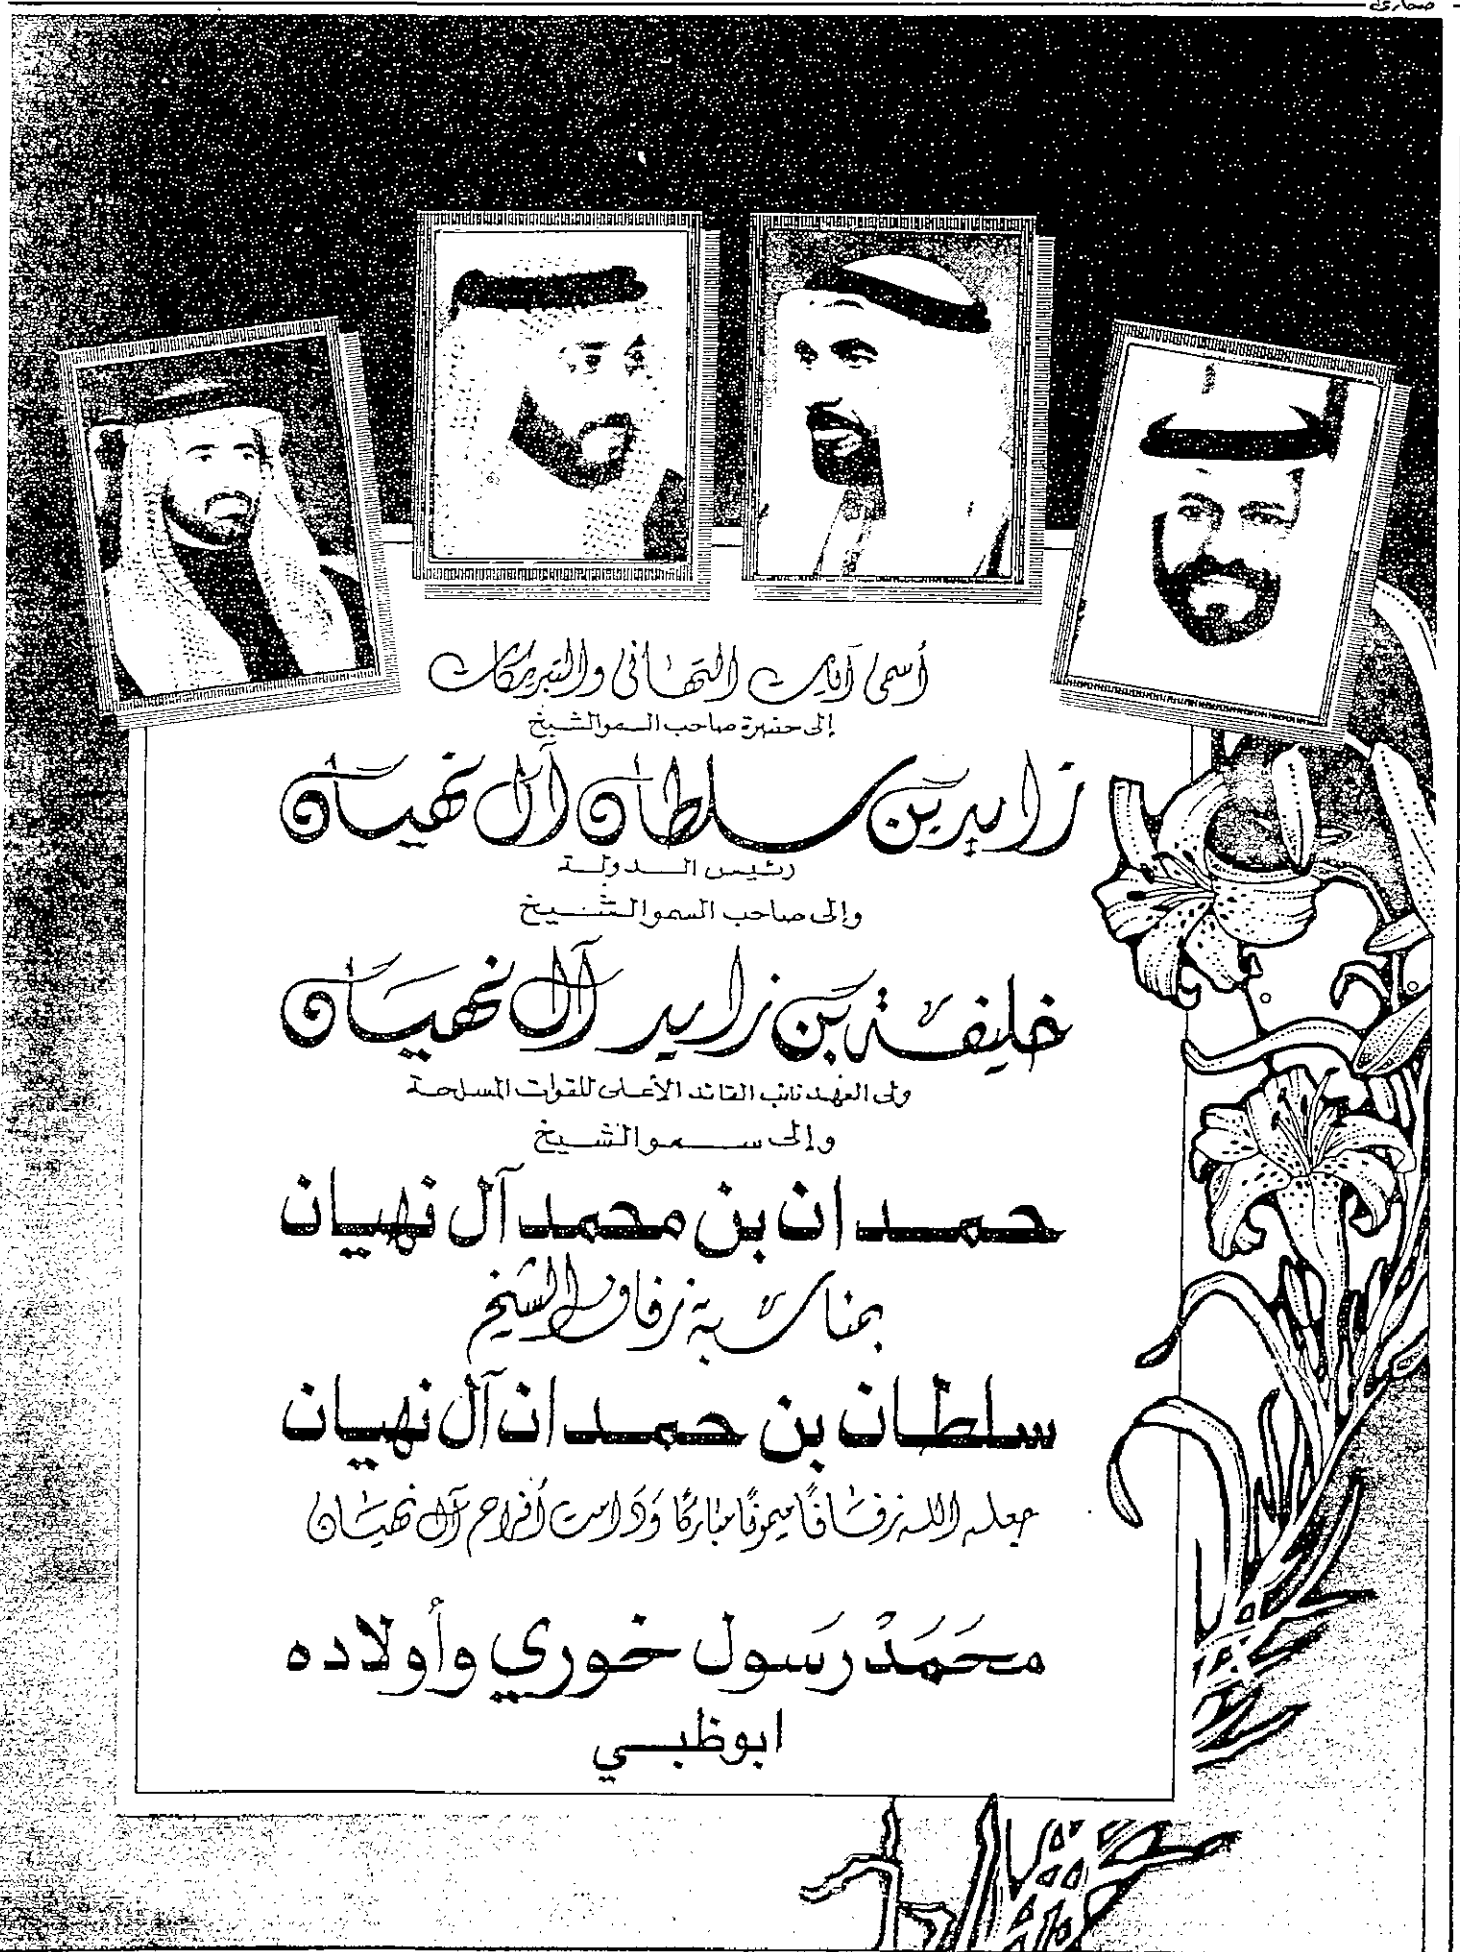 صحارى
أسمى آيات التهانى والتبريكات
إلى حضرة صاحب السمو الشيخ
زايد بن سلطان آل نهيان
رئيس الدولة
وإلى صاحب السمو الشيخ
خليفة بن زايد آل نهيان
ولى العهد نائب القائد الأعلى للقوات المسلحة
وإلى سمو الشيخ
حمدان بن محمد آل نهيان
بمناسبة زفاف الشيخ
سلطان بن حمدان آل نهيان
جعله الله زفافًا ميمونًا مباركًا وَدَامت أفراح آل نهيان
محَمَدْ رسَول خوري وأولاده
ابوظبي